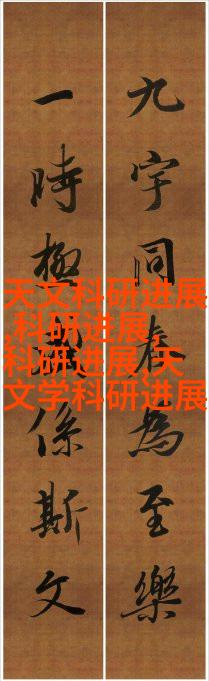 九宇同春為至樂
一時極係斯文
天文科研进展
,科研进展,
科研进展,天
文学科研进展